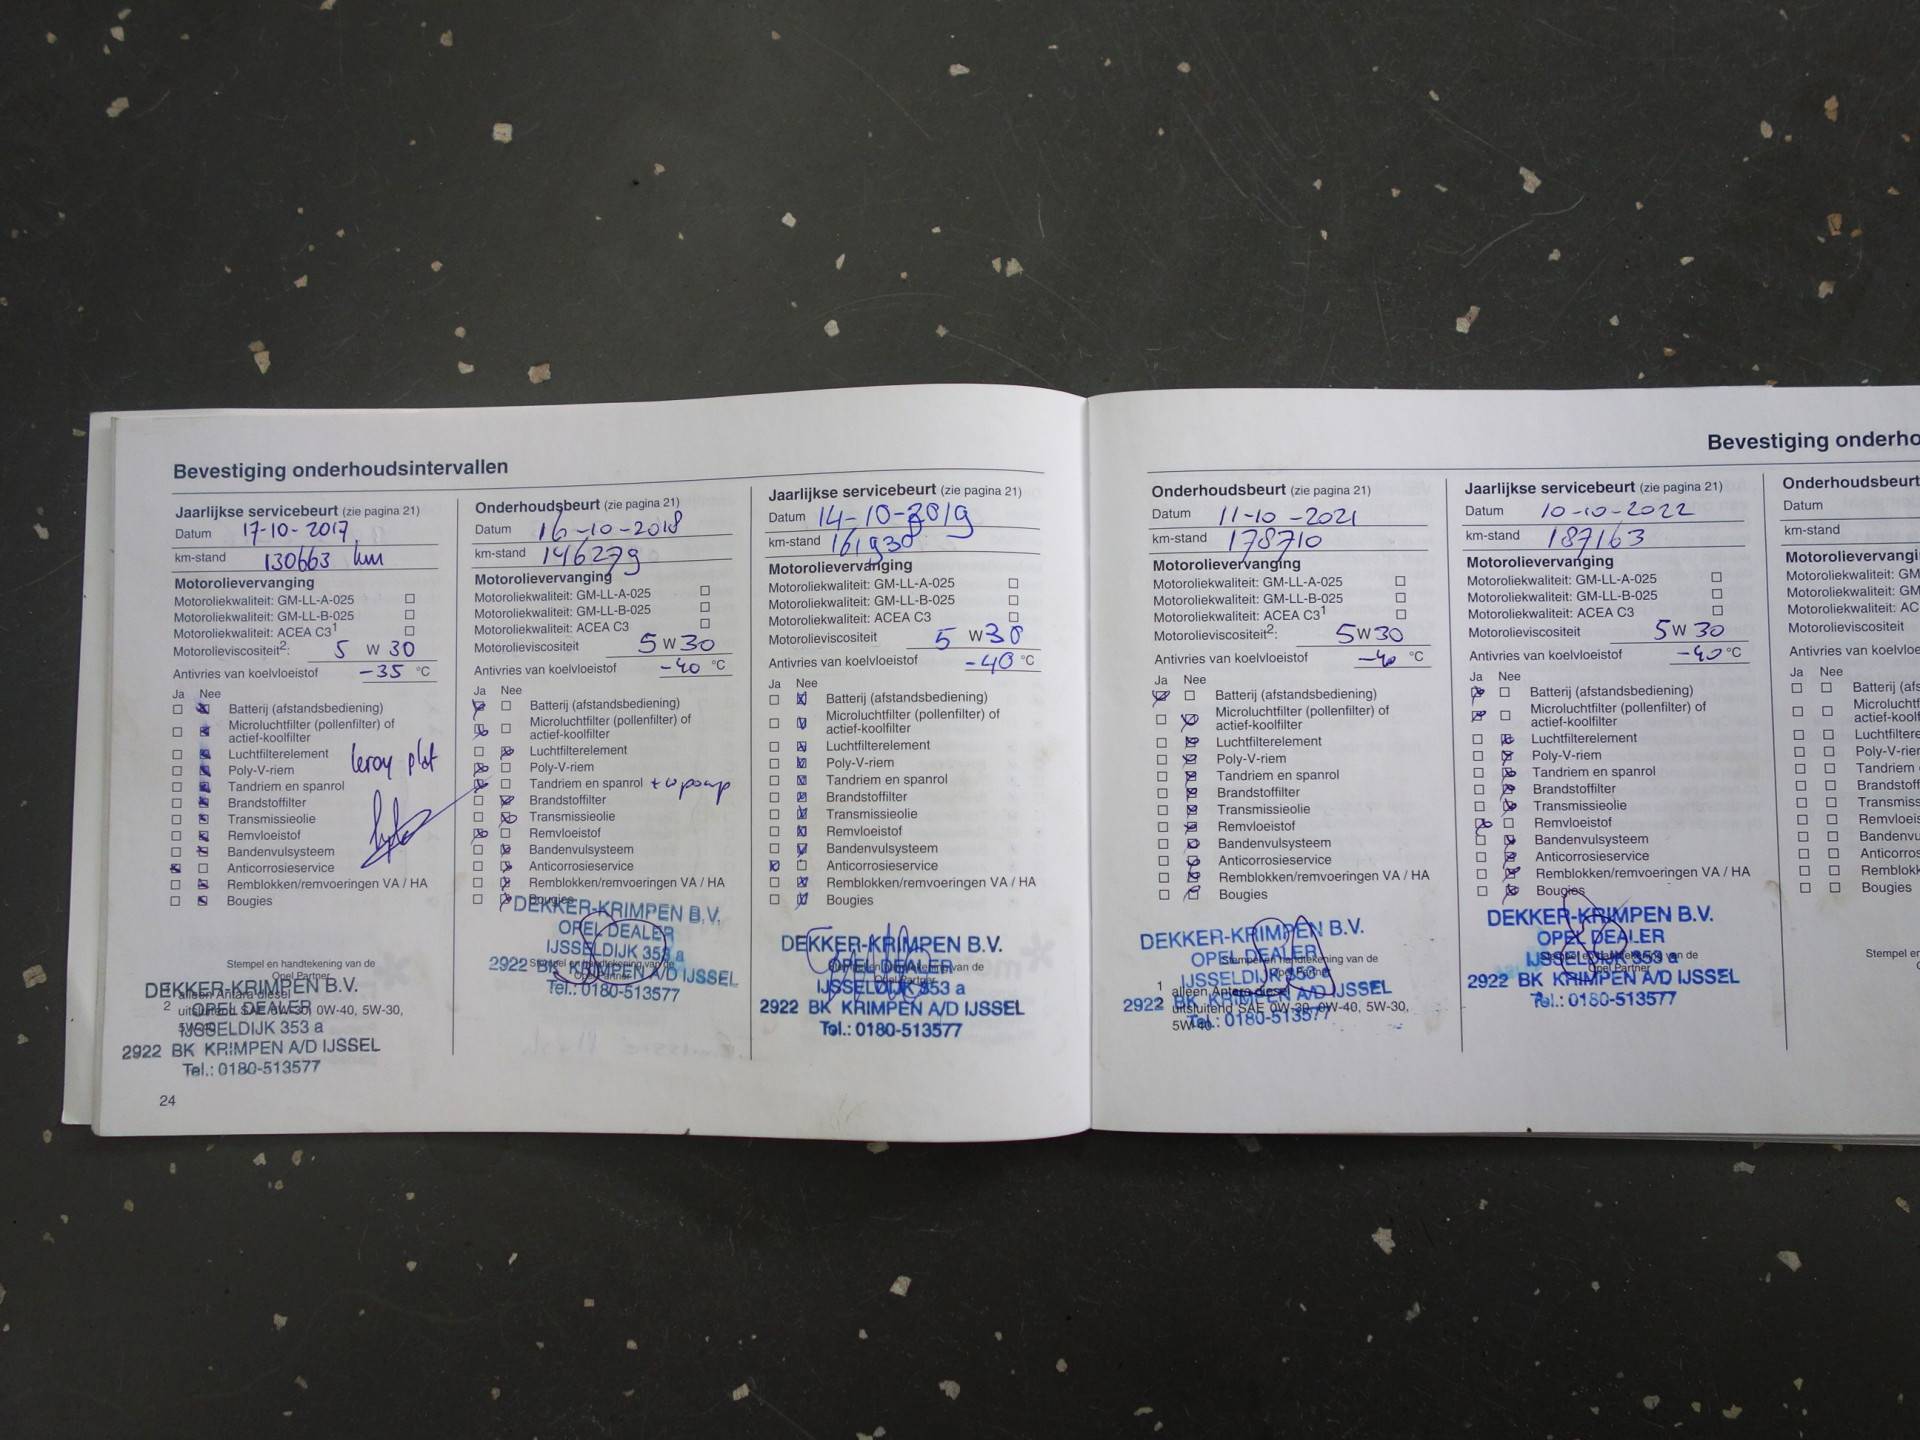 Bevestiging onderhoudsintervallen
Jaarlijkse servicebeurt (zie pagina 21)
Datum 17-10-2017
km-stand 130663 km
Motorolievervanging
Motoroliekwaliteit: GM-LL-A-025
Motoroliekwaliteit: GM-LL-B-025
Motoroliekwaliteit: ACEA C3¹
Motorolieviscositeit²: 5 W 30
Antivries van koelvloeistof -35 °C
Ja Nee
Batterij (afstandsbediening)
Microluchtfilter (pollenfilter) of
actief-koolfilter
Luchtfilterelement
Poly-V-riem
Tandriem en spanrol
Brandstoffilter
Transmissieolie
Remvloeistof
Bandenvulsysteem
Anticorrosieservice
Remblokken/remvoeringen VA / HA
Bougies
Stempel en handtekening van de
Opel Partner
1 alleen Antara diesel
2 uitsluitend SAE 0W-30, 0W-40, 5W-30,
5W-40
DEKKER-KRIMPEN B.V.
OPEL DEALER
IJSSELDIJK 353 a
2922 BK KRIMPEN A/D IJSSEL
Tel.: 0180-513577
24
Onderhoudsbeurt (zie pagina 21)
Datum 16-10-2018
km-stand 146279
Motorolievervanging
Motoroliekwaliteit: GM-LL-A-025
Motoroliekwaliteit: GM-LL-B-025
Motoroliekwaliteit: ACEA C3
Motorolieviscositeit 5 W 30
Antivries van koelvloeistof -40 °C
Ja Nee
Batterij (afstandsbediening)
Microluchtfilter (pollenfilter) of
actief-koolfilter
Luchtfilterelement
Poly-V-riem
Tandriem en spanrol + w pomp
Brandstoffilter
Transmissieolie
Remvloeistof
Bandenvulsysteem
Anticorrosieservice
Remblokken/remvoeringen VA / HA
Bougies
DEKKER-KRIMPEN B.V.
OPEL DEALER
IJSSELDIJK 353 a
2922 BK KRIMPEN A/D IJSSEL
Tel.: 0180-513577
Jaarlijkse servicebeurt (zie pagina 21)
Datum 14-10-2019
km-stand 161930
Motorolievervanging
Motoroliekwaliteit: GM-LL-A-025
Motoroliekwaliteit: GM-LL-B-025
Motoroliekwaliteit: ACEA C3
Motorolieviscositeit 5 W 30
Antivries van koelvloeistof -40 °C
Ja Nee
Batterij (afstandsbediening)
Microluchtfilter (pollenfilter) of
actief-koolfilter
Luchtfilterelement
Poly-V-riem
Tandriem en spanrol
Brandstoffilter
Transmissieolie
Remvloeistof
Bandenvulsysteem
Anticorrosieservice
Remblokken/remvoeringen VA / HA
Bougies
DEKKER-KRIMPEN B.V.
OPEL DEALER
IJSSELDIJK 353 a
2922 BK KRIMPEN A/D IJSSEL
Tel.: 0180-513577
Bevestiging onderho
Onderhoudsbeurt (zie pagina 21)
Datum 11-10-2021
km-stand 178710
Motorolievervanging
Motoroliekwaliteit: GM-LL-A-025
Motoroliekwaliteit: GM-LL-B-025
Motoroliekwaliteit: ACEA C3¹
Motorolieviscositeit²: 5 W 30
Antivries van koelvloeistof -40 °C
Ja Nee
Batterij (afstandsbediening)
Microluchtfilter (pollenfilter) of
actief-koolfilter
Luchtfilterelement
Poly-V-riem
Tandriem en spanrol
Brandstoffilter
Transmissieolie
Remvloeistof
Bandenvulsysteem
Anticorrosieservice
Remblokken/remvoeringen VA / HA
Bougies
Stempel en handtekening van de
1 alleen Antara diesel
2 uitsluitend SAE 0W-30, 0W-40, 5W-30,
5W-40
DEKKER-KRIMPEN B.V.
OPEL DEALER
IJSSELDIJK 353 a
2922 BK KRIMPEN A/D IJSSEL
Tel.: 0180-513577
Jaarlijkse servicebeurt (zie pagina 21)
Datum 10-10-2022
km-stand 187163
Motorolievervanging
Motoroliekwaliteit: GM-LL-A-025
Motoroliekwaliteit: GM-LL-B-025
Motoroliekwaliteit: ACEA C3
Motorolieviscositeit 5 W 30
Antivries van koelvloeistof -40 °C
Ja Nee
Batterij (afstandsbediening)
Microluchtfilter (pollenfilter) of
actief-koolfilter
Luchtfilterelement
Poly-V-riem
Tandriem en spanrol
Brandstoffilter
Transmissieolie
Remvloeistof
Bandenvulsysteem
Anticorrosieservice
Remblokken/remvoeringen VA / HA
Bougies
DEKKER-KRIMPEN B.V.
OPEL DEALER
IJSSELDIJK 353 a
2922 BK KRIMPEN A/D IJSSEL
Tel.: 0180-513577
Onderhoudsbeurt
Datum
km-stand
Motorolievervangi
Motoroliekwaliteit: GM
Motoroliekwaliteit: GM
Motoroliekwaliteit: AC
Motorolieviscositeit
Antivries van koelvloe
Ja Nee
Batterij (afs
Microluchtf
actief-koolf
Luchtfiltere
Poly-V-riem
Tandriem e
Brandstoff
Transmiss
Remvloeis
Bandenvu
Anticorros
Remblokk
Bougies
Stempel en